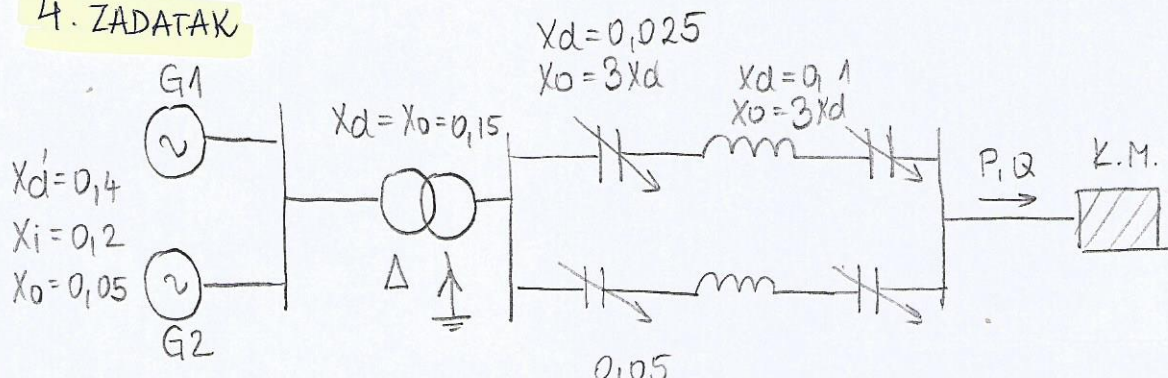 4. ZADATAK
G1
Xd'=0,4
Xi=0,2
X0=0,05
G2
Xd=X0=0,15
Δ
Xd=0,025
X0=3Xd
Xd=0,1
X0=3Xd
P,Q
K.M.
0,05